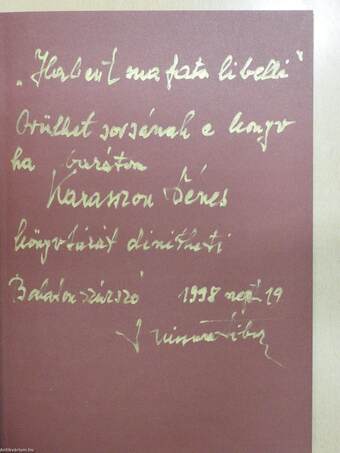 „Habent sua fata libelli"
Örülhet sorsának e könyv
ha barátom
Karasszon Dénes
könyvtárát díszítheti
Balatonszárszó 1998 szept 19
Tibor